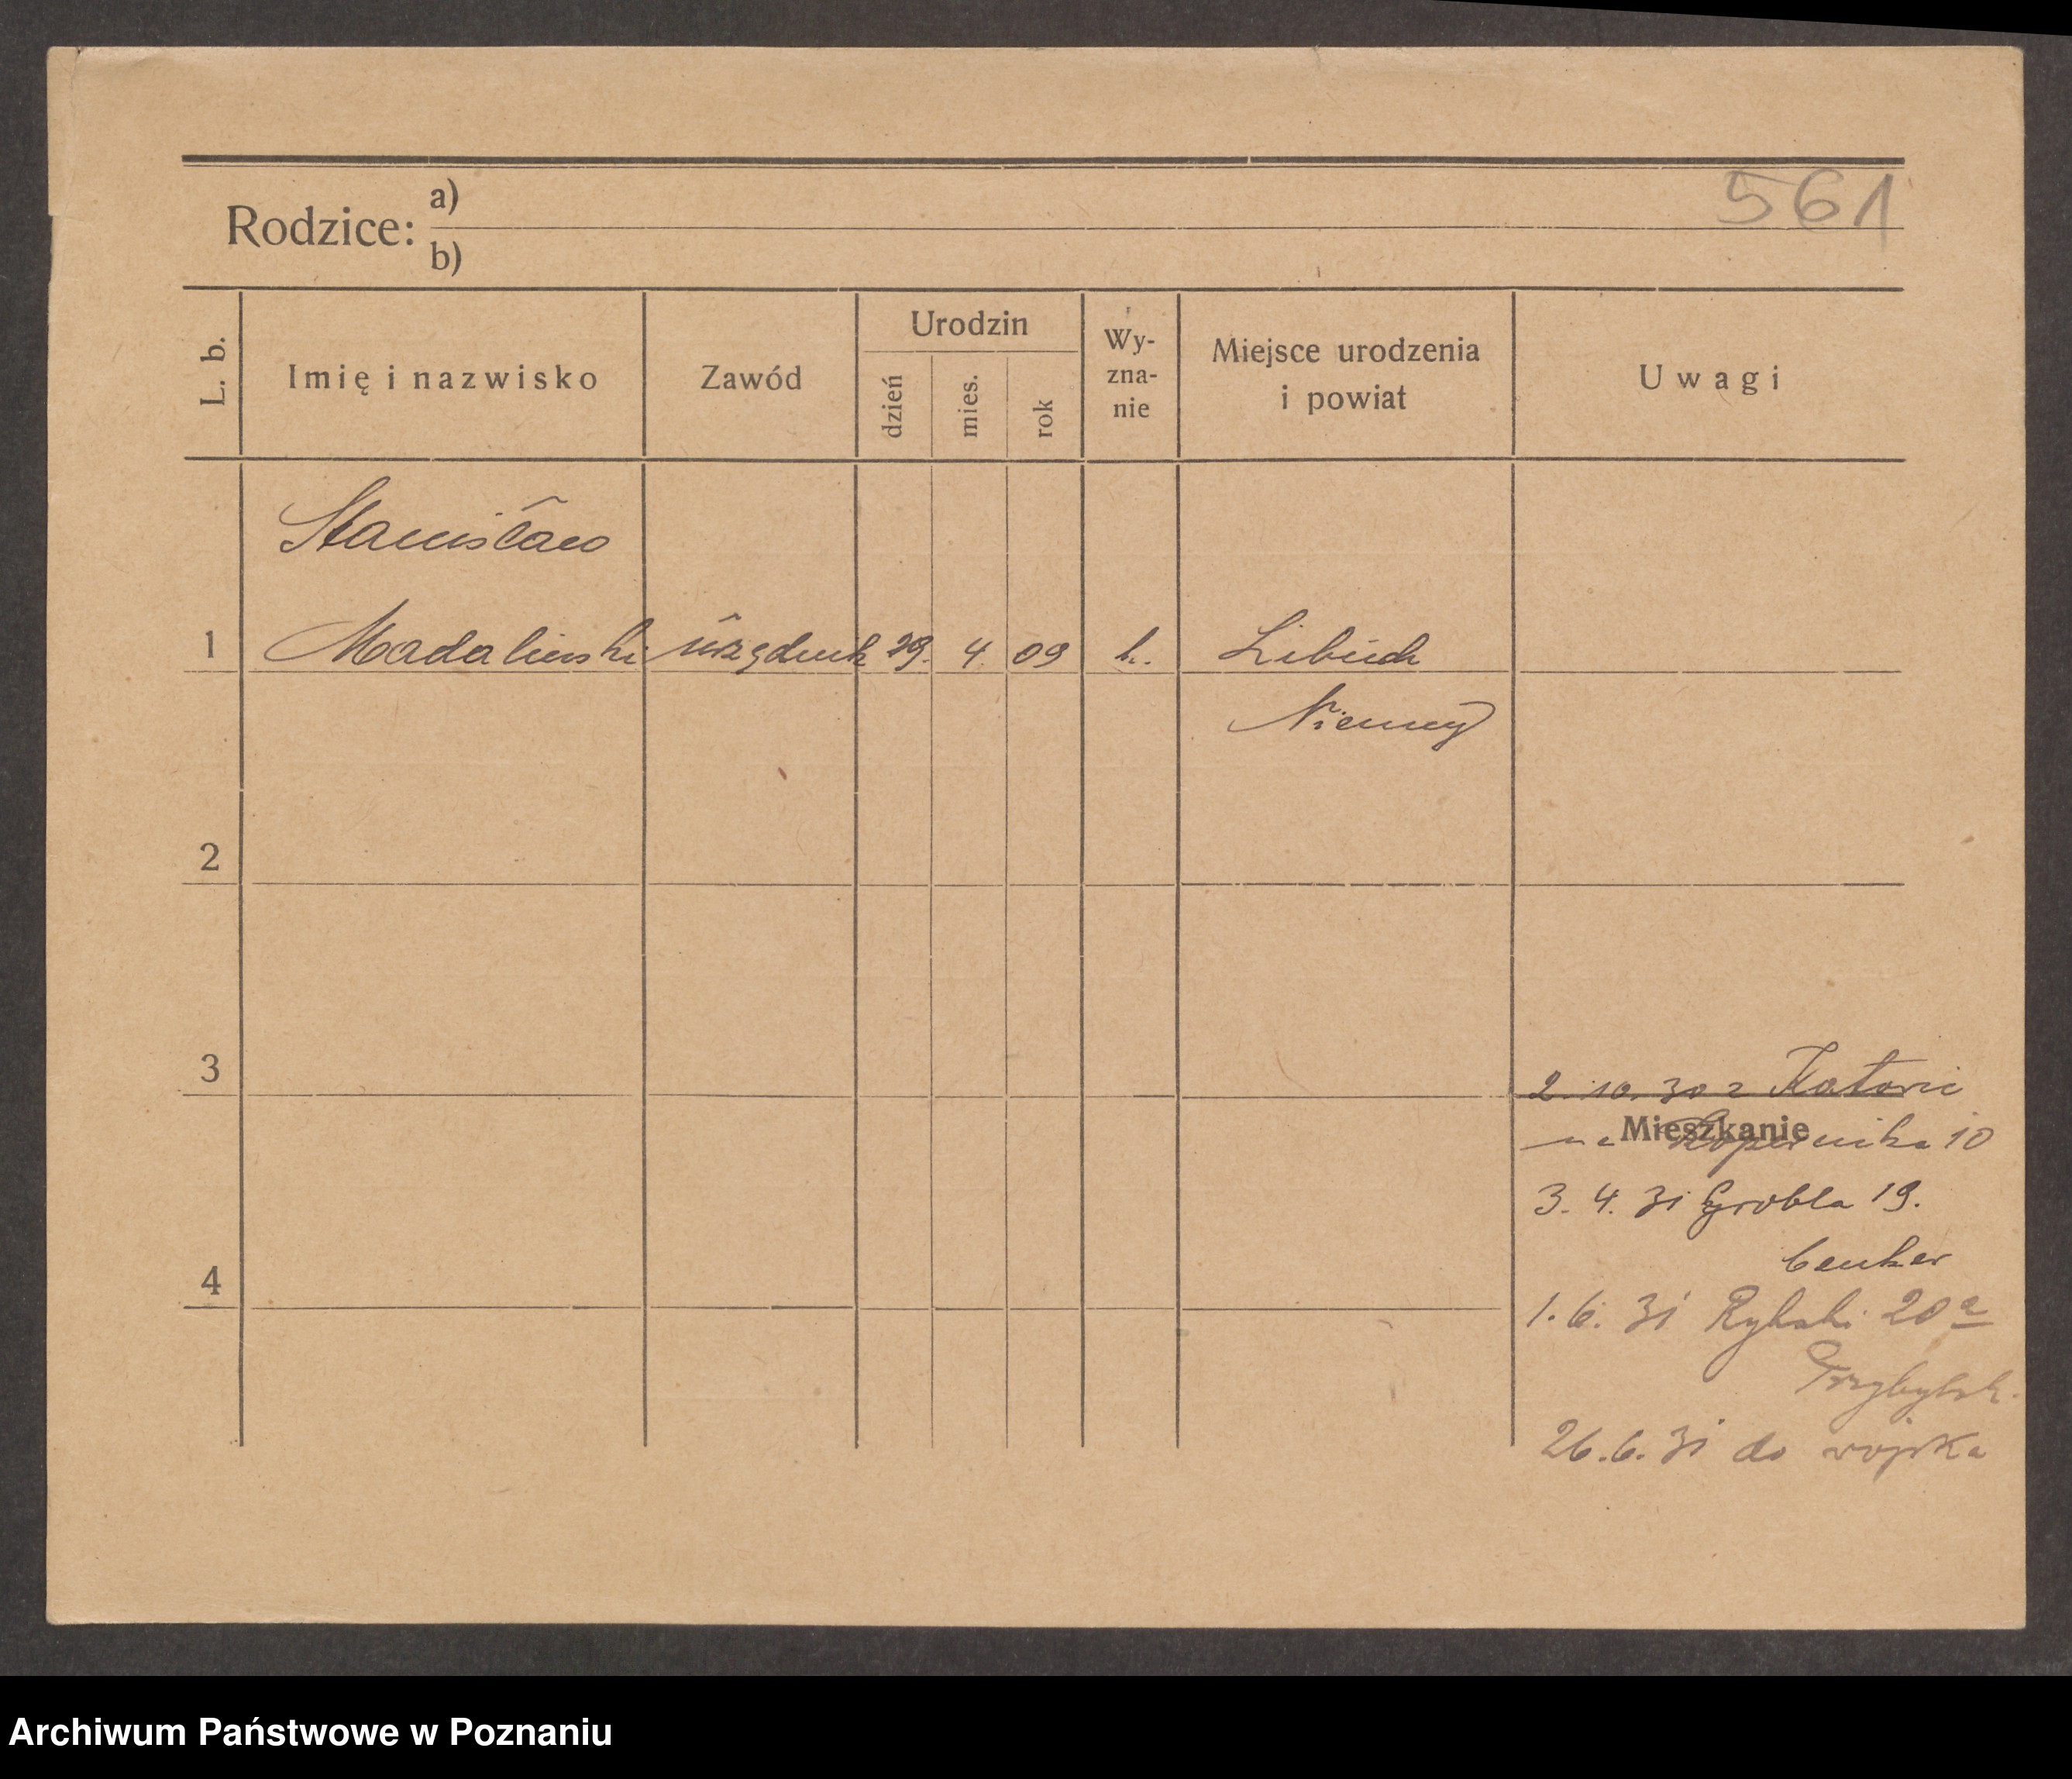 561
Rodzice: a)
b)
L. b. Imię i nazwisko Zawód Urodzin dzień mies. rok Wy-zna-nie Miejsce urodzenia i powiat Uwagi
Stanisław
1 Madalinski urzędnik 29. 4. 09 k. Libuch
Niemcy
2
3
2. 10. 30 z Katowic
Mieszkanie
na Kopernika 10
3. 4. 31 Grobla 19.
4
1. 6. 31 Rybaki 20a
Przybylsk.
26. 6. 31 do wojska
Archiwum Państwowe w Poznaniu